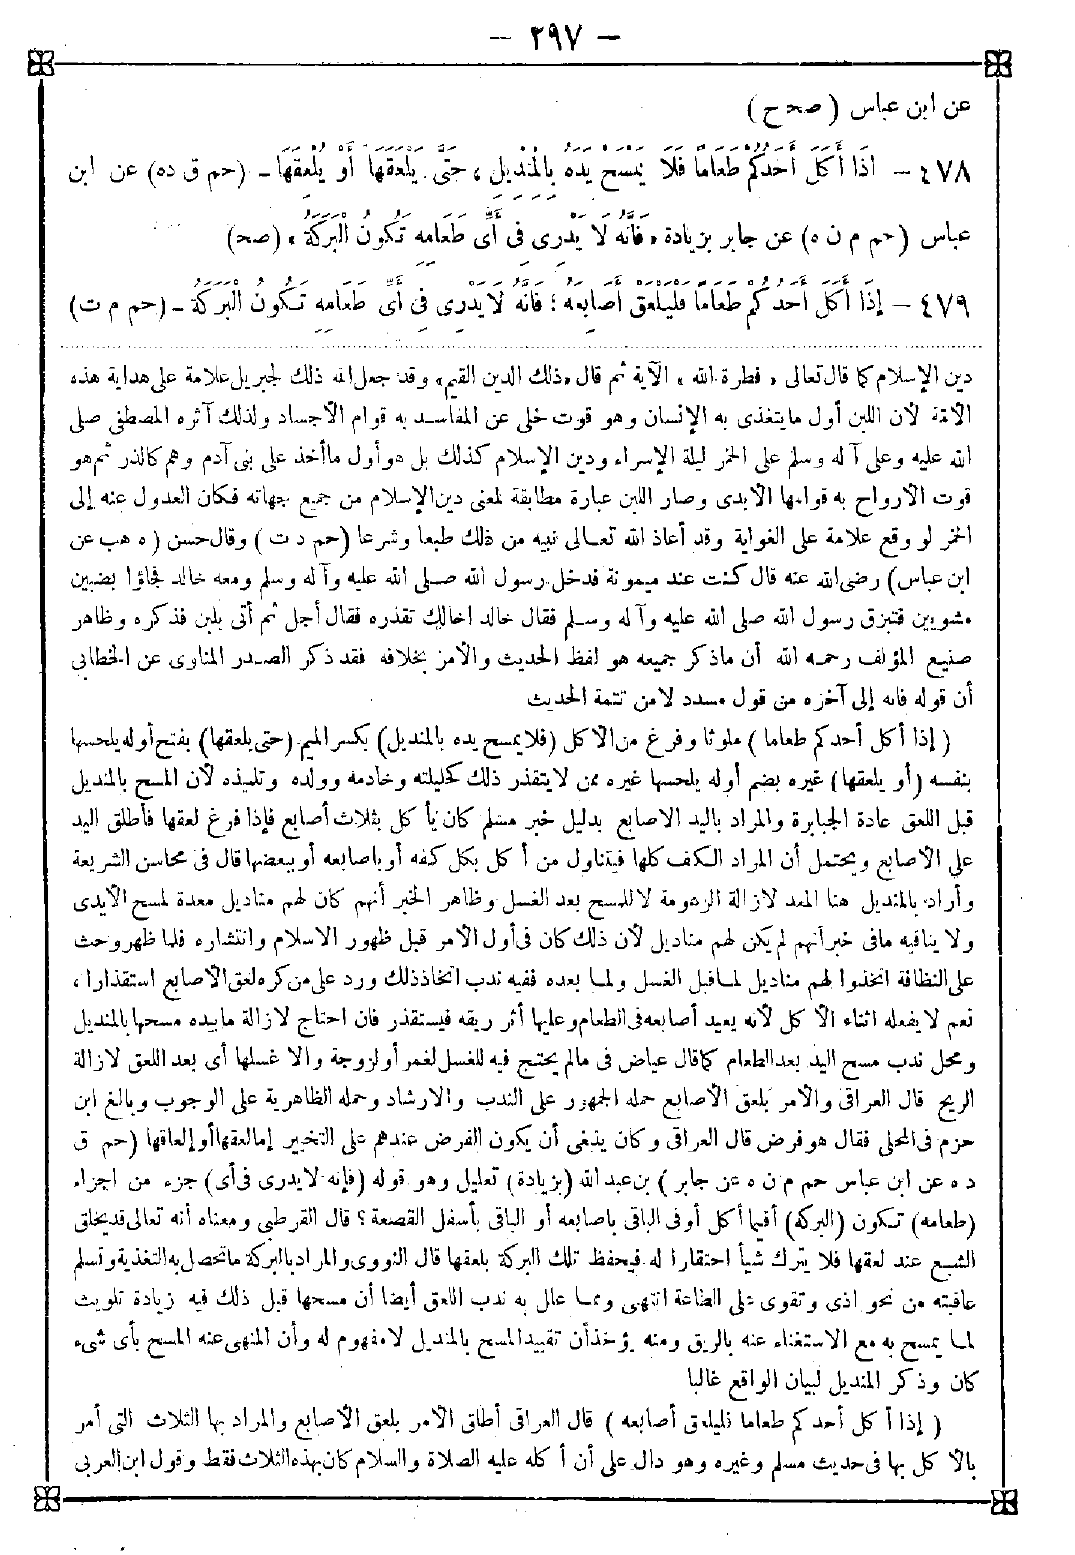 — ٢٩٧ —
عن ابن عباس ( صح ح )
٤٧٨ — اذَا أَكَلَ أَحَدُكُمْ طَعَامًا فَلَا يَمْسَحْ يَدَهُ بِالْمِنْدِيلِ ، حَتَّى يَلْعَقَهَا أَوْ يُلْعِقَهَا - (حم ق ده) عن ابن
عباس (حم م ن ه) عن جابر بزيادة «فَانَّهُ لَا يَدْرِى فِى أَىِّ طَعَامِهِ تَكُونُ الْبَرَكَةُ» (صح)
٤٧٩ — إِذَا أَكَلَ أَحَدُكُمْ طَعَامًا فَلْيَلْعَقْ أَصَابِعَهُ ؛ فَانَّهُ لَا يَدْرِى فِى أَىِّ طَعَامِهِ تَكُونُ الْبَرَكَةُ - (حم م ت)
دين الإسلام كما قال تعالى « فطرة الله » الآية ثم قال «ذلك الدين القيم» وقد جعل الله ذلك لجبريل علامة على هداية هذه
الأمة لأن اللبن أول ما يتغذى به الإنسان وهو قوت خلى عن المفاسد به قوام الأجساد ولذلك آثره المصطفى صلى
الله عليه وعلى آله وسلم على الخمر ليلة الإسراء ودين الإسلام كذلك بل هو أول ما أخذ على بنى آدم وهم كالذر ثم هو
قوت الأرواح به قوامها الأبدى وصار اللبن عبارة مطابقة لمعنى دين الإسلام من جميع جهاته فكان العدول عنه إلى
الخمر لو وقع علامة على الغواية وقد أعاذ الله تعالى نبيه من ذلك طبعا وشرعا (حم د ت) وقال حسن ( ه هب عن
ابن عباس) رضى الله عنه قال كنت عند ميمونة فدخل رسول الله صلى الله عليه وآله وسلم ومعه خالد فجاؤا بضبين
مشويين فتبزق رسول الله صلى الله عليه وآله وسلم فقال خالد اخالك تقذره فقال أجل ثم أتى بلبن فذكره وظاهر
صنيع المؤلف رحمه الله أن ماذكر جميعه هو لفظ الحديث والأمر بخلافه فقد ذكر الصدر المناوى عن الخطابى
أن قوله فانه إلى آخره من قول مسدد لا من تتمة الحديث
( إذا أكل أحدكم طعاما ) ملوثا وفرغ من الأكل (فلا يمسح يده بالمنديل) بكسر الميم (حتى يلعقها) بفتح أوله يلحسها
بنفسه (أو يلعقها) غيره بضم أوله يلحسها غيره ممن لا يتقذر ذلك كحليلته وخادمه وولده وتلميذه لأن المسح بالمنديل
قبل اللعق عادة الجبابرة والمراد باليد الاصابع بدليل خبر مسلم كان يأكل بثلاث أصابع فإذا فرغ لعقها فأطلق اليد
على الأصابع ويحتمل أن المراد الكف كلها فيتناول من أكل بكل كفه أو باصابعه أو ببعضها قال فى محاسن الشريعة
وأراد بالمنديل هنا المعد لازالة الزهومة لا للمسح بعد الغسل وظاهر الخبر أنهم كان لهم مناديل معدة لمسح الأيدى
ولا ينافيه ما فى خبر أنهم لم يكن لهم مناديل لأن ذلك كان فى أول الأمر قبل ظهور الاسلام وانتشاره فلما ظهر وحث
على النظافة اتخذوا لهم مناديل لما قبل الغسل ولما بعده ففيه ندب اتخاذ ذلك ورد على من كره لعق الأصابع استقذارا ،
نعم لا يفعله اثناء الأكل لأنه يعيد أصابعه فى الطعام وعليها أثر ريقه فيستقذر فان احتاج لازالة ما بيده مسحها بالمنديل
ومحل ندب مسح اليد بعد الطعام كما قال عياض فى مالم يحتج فيه للغسل لغمر أو لزوجة والا غسلها أى بعد اللعق لازالة
الريح قال العراقى والأمر بلعق الأصابع حمله الجمهور على الندب والارشاد وحمله الظاهرية على الوجوب وبالغ ابن
حزم فى المحلى فقال هو فرض قال العراقى وكان ينبغى أن يكون الفرض عندهم على التخيير إما لعقها أو إلعاقها (حم ق
د ه عن ابن عباس حم م ن ه عن جابر ) بن عبد الله (بزيادة) تعليل وهو قوله (فإنه لا يدرى فى أى) جزء من اجزاء
(طعامه) تكون (البركة) أفيما أكل أو فى الباقى باصابعه أو الباقى بأسفل القصعة ؟ قال القرطبى ومعناه أنه تعالى قد يخلق
الشبع عند لعقها فلا يترك شيأ احتقارا له فيحفظ تلك البركة بلعقها قال النووى والمراد بالبركة ما تحصل به التغذية وتسلم
عاقبته من نحو اذى وتقوى على الطاعة انتهى ومما علل به ندب اللعق أيضا أن مسحها قبل ذلك فيه زيادة تلويث
لما يمسح به مع الاستغناء عنه بالريق ومنه يؤخذ أن تقييد المسح بالمنديل لا مفهوم له وأن المنهى عنه المسح بأى شىء
كان وذكر المنديل لبيان الواقع غالبا
( إذا أكل أحدكم طعاما فليلعق أصابعه ) قال العراقى أطلق الأمر بلعق الأصابع والمراد بها الثلاث التى أمر
بالأكل بها فى حديث مسلم وغيره وهو دال على أن أكله عليه الصلاة والسلام كان بهذه الثلاث فقط وقول ابن العربى